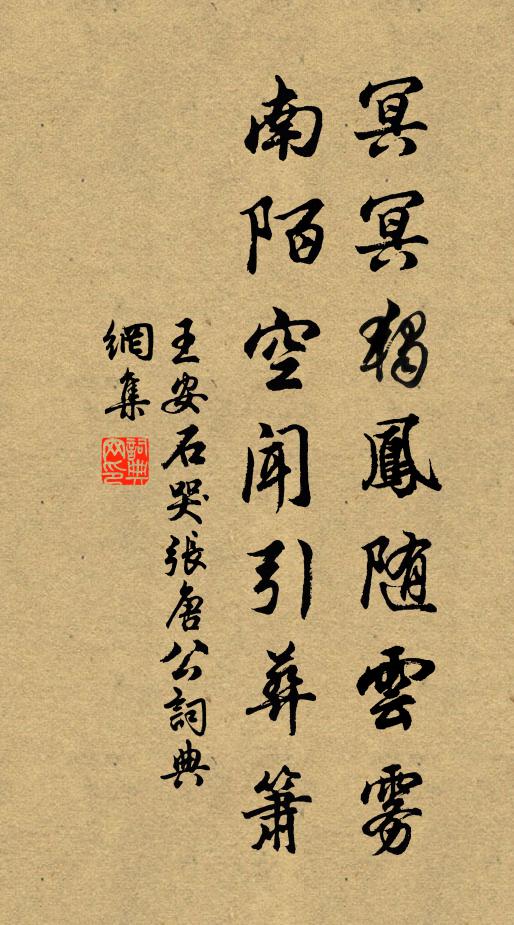 冥冥獨鳳隨雲霧
南陌空聞引葬簫
王安石哭張唐公詞典
網集
詞典網印